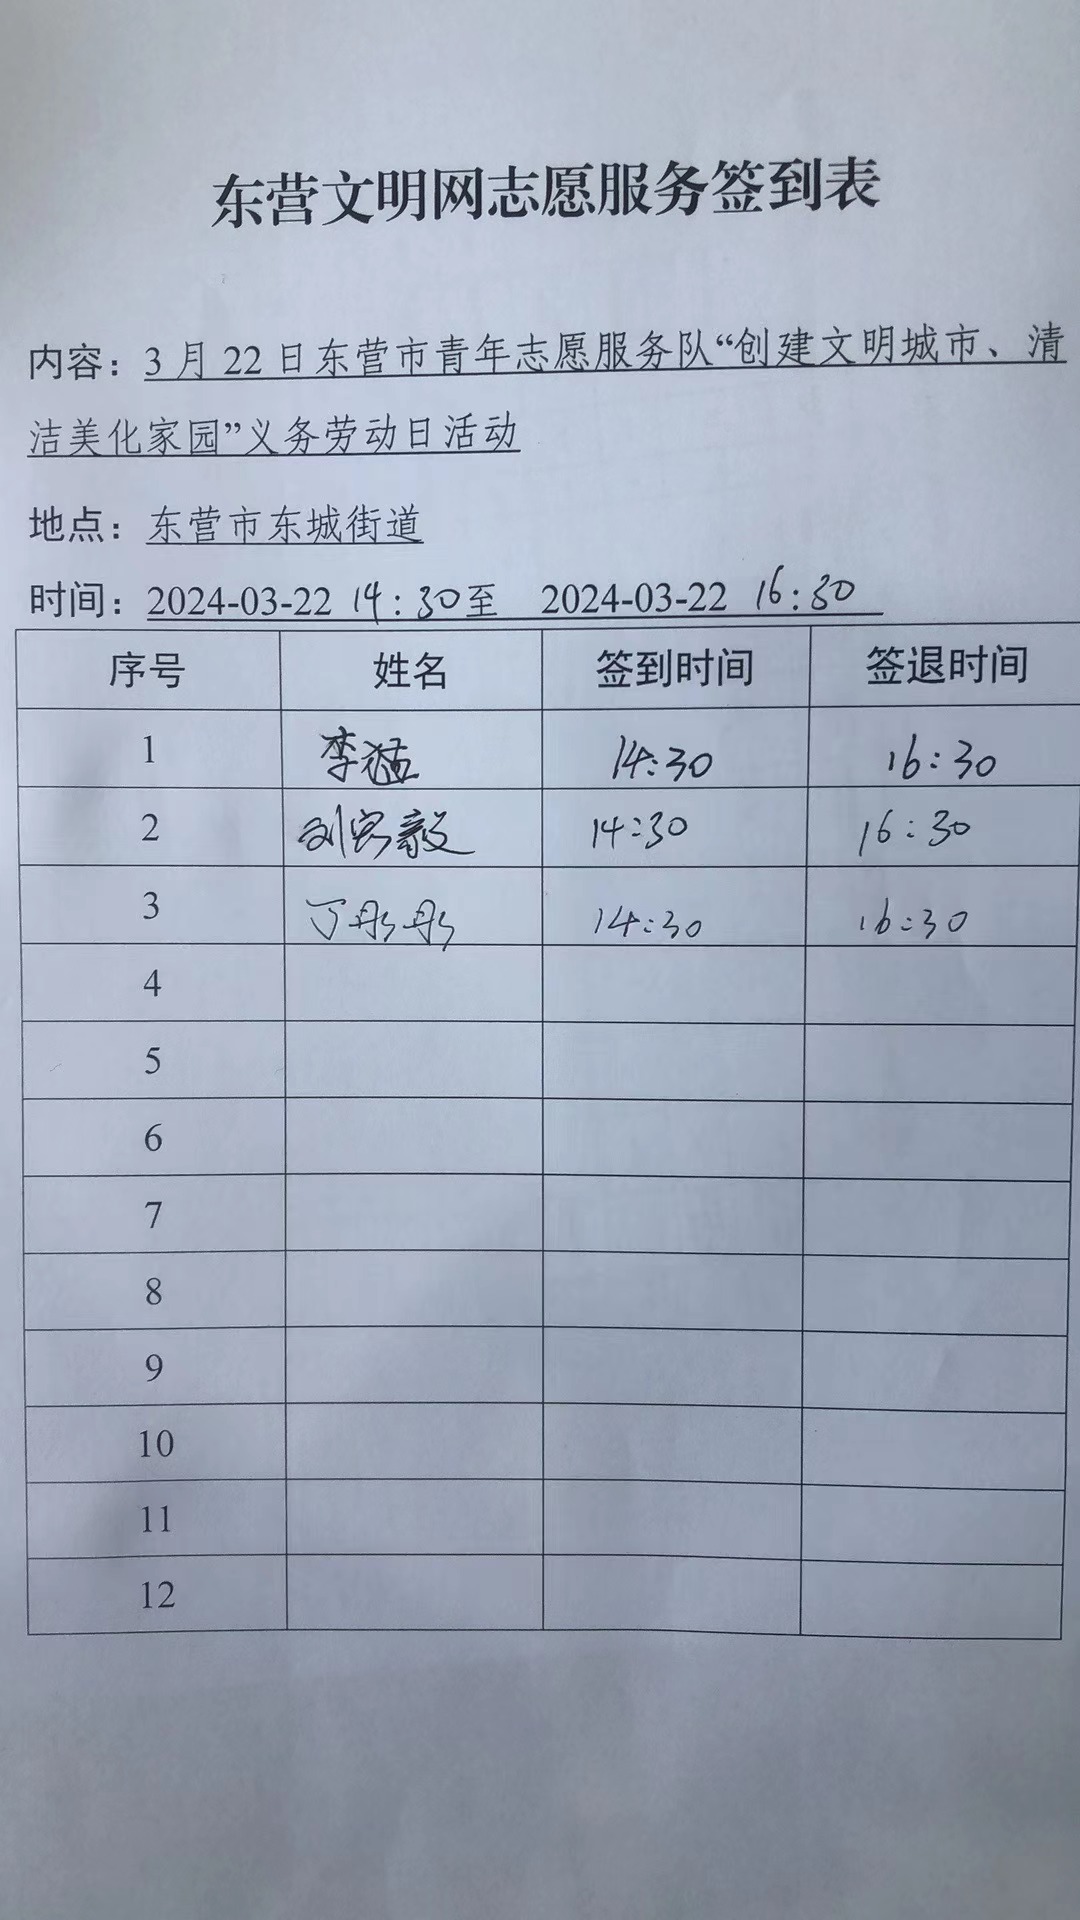 东营文明网志愿服务签到表
内容：3月22日东营市青年志愿服务队“创建文明城市、清
洁美化家园”义务劳动日活动
地点：东营市东城街道
时间：2024-03-22 14:30至 2024-03-22 16:30
序号 姓名 签到时间 签退时间
1 李猛 14:30 16:30
2 刘宏毅 14:30 16:30
3 丁彤彤 14:30 16:30
4
5
6
7
8
9
10
11
12